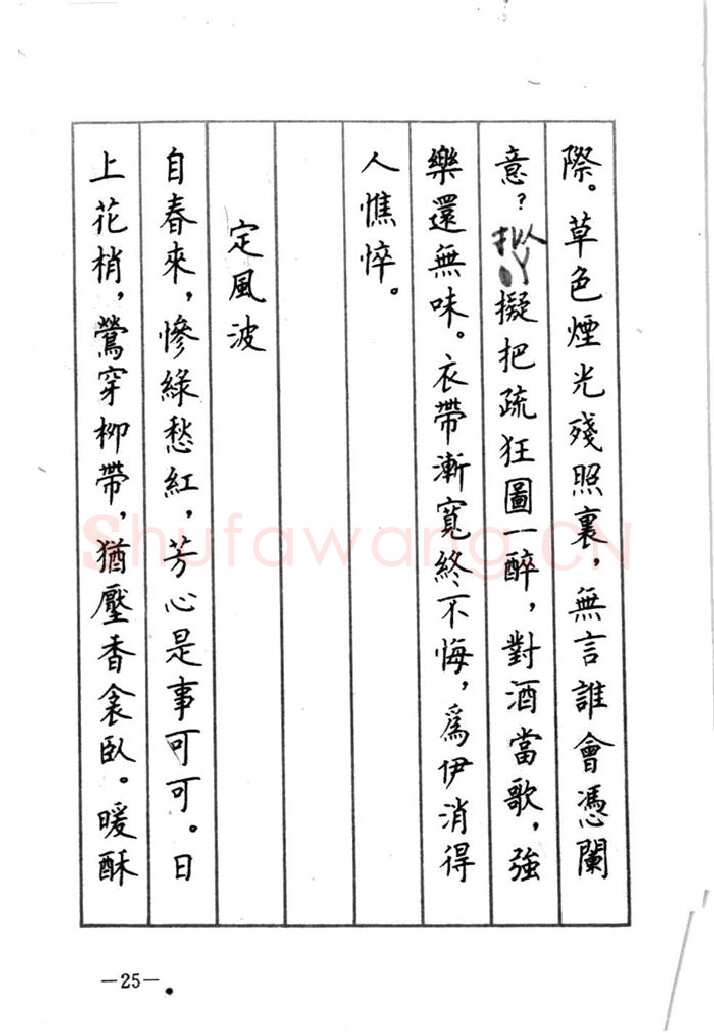 際。草色煙光殘照裏，無言誰會憑闌
意？擬把疏狂圖一醉，對酒當歌，強
樂還無味。衣帶漸寬終不悔，爲伊消得
人憔悴。
定風波
自春來，慘綠愁紅，芳心是事可可。日
上花梢，鶯穿柳帶，猶壓香衾臥。暖酥
—25—
Shufawang.CN